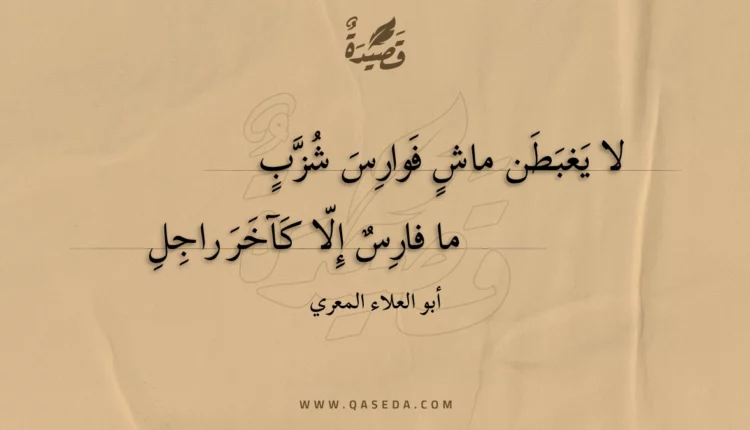 قَصِيدَةٌ
لا يَغبَطَن ماشٍ فَوارِسَ شُزَّبٍ
ما فارِسٌ إِلّا كَآخَرَ راجِلِ
أبو العلاء المعري
WWW.QASEDA.COM